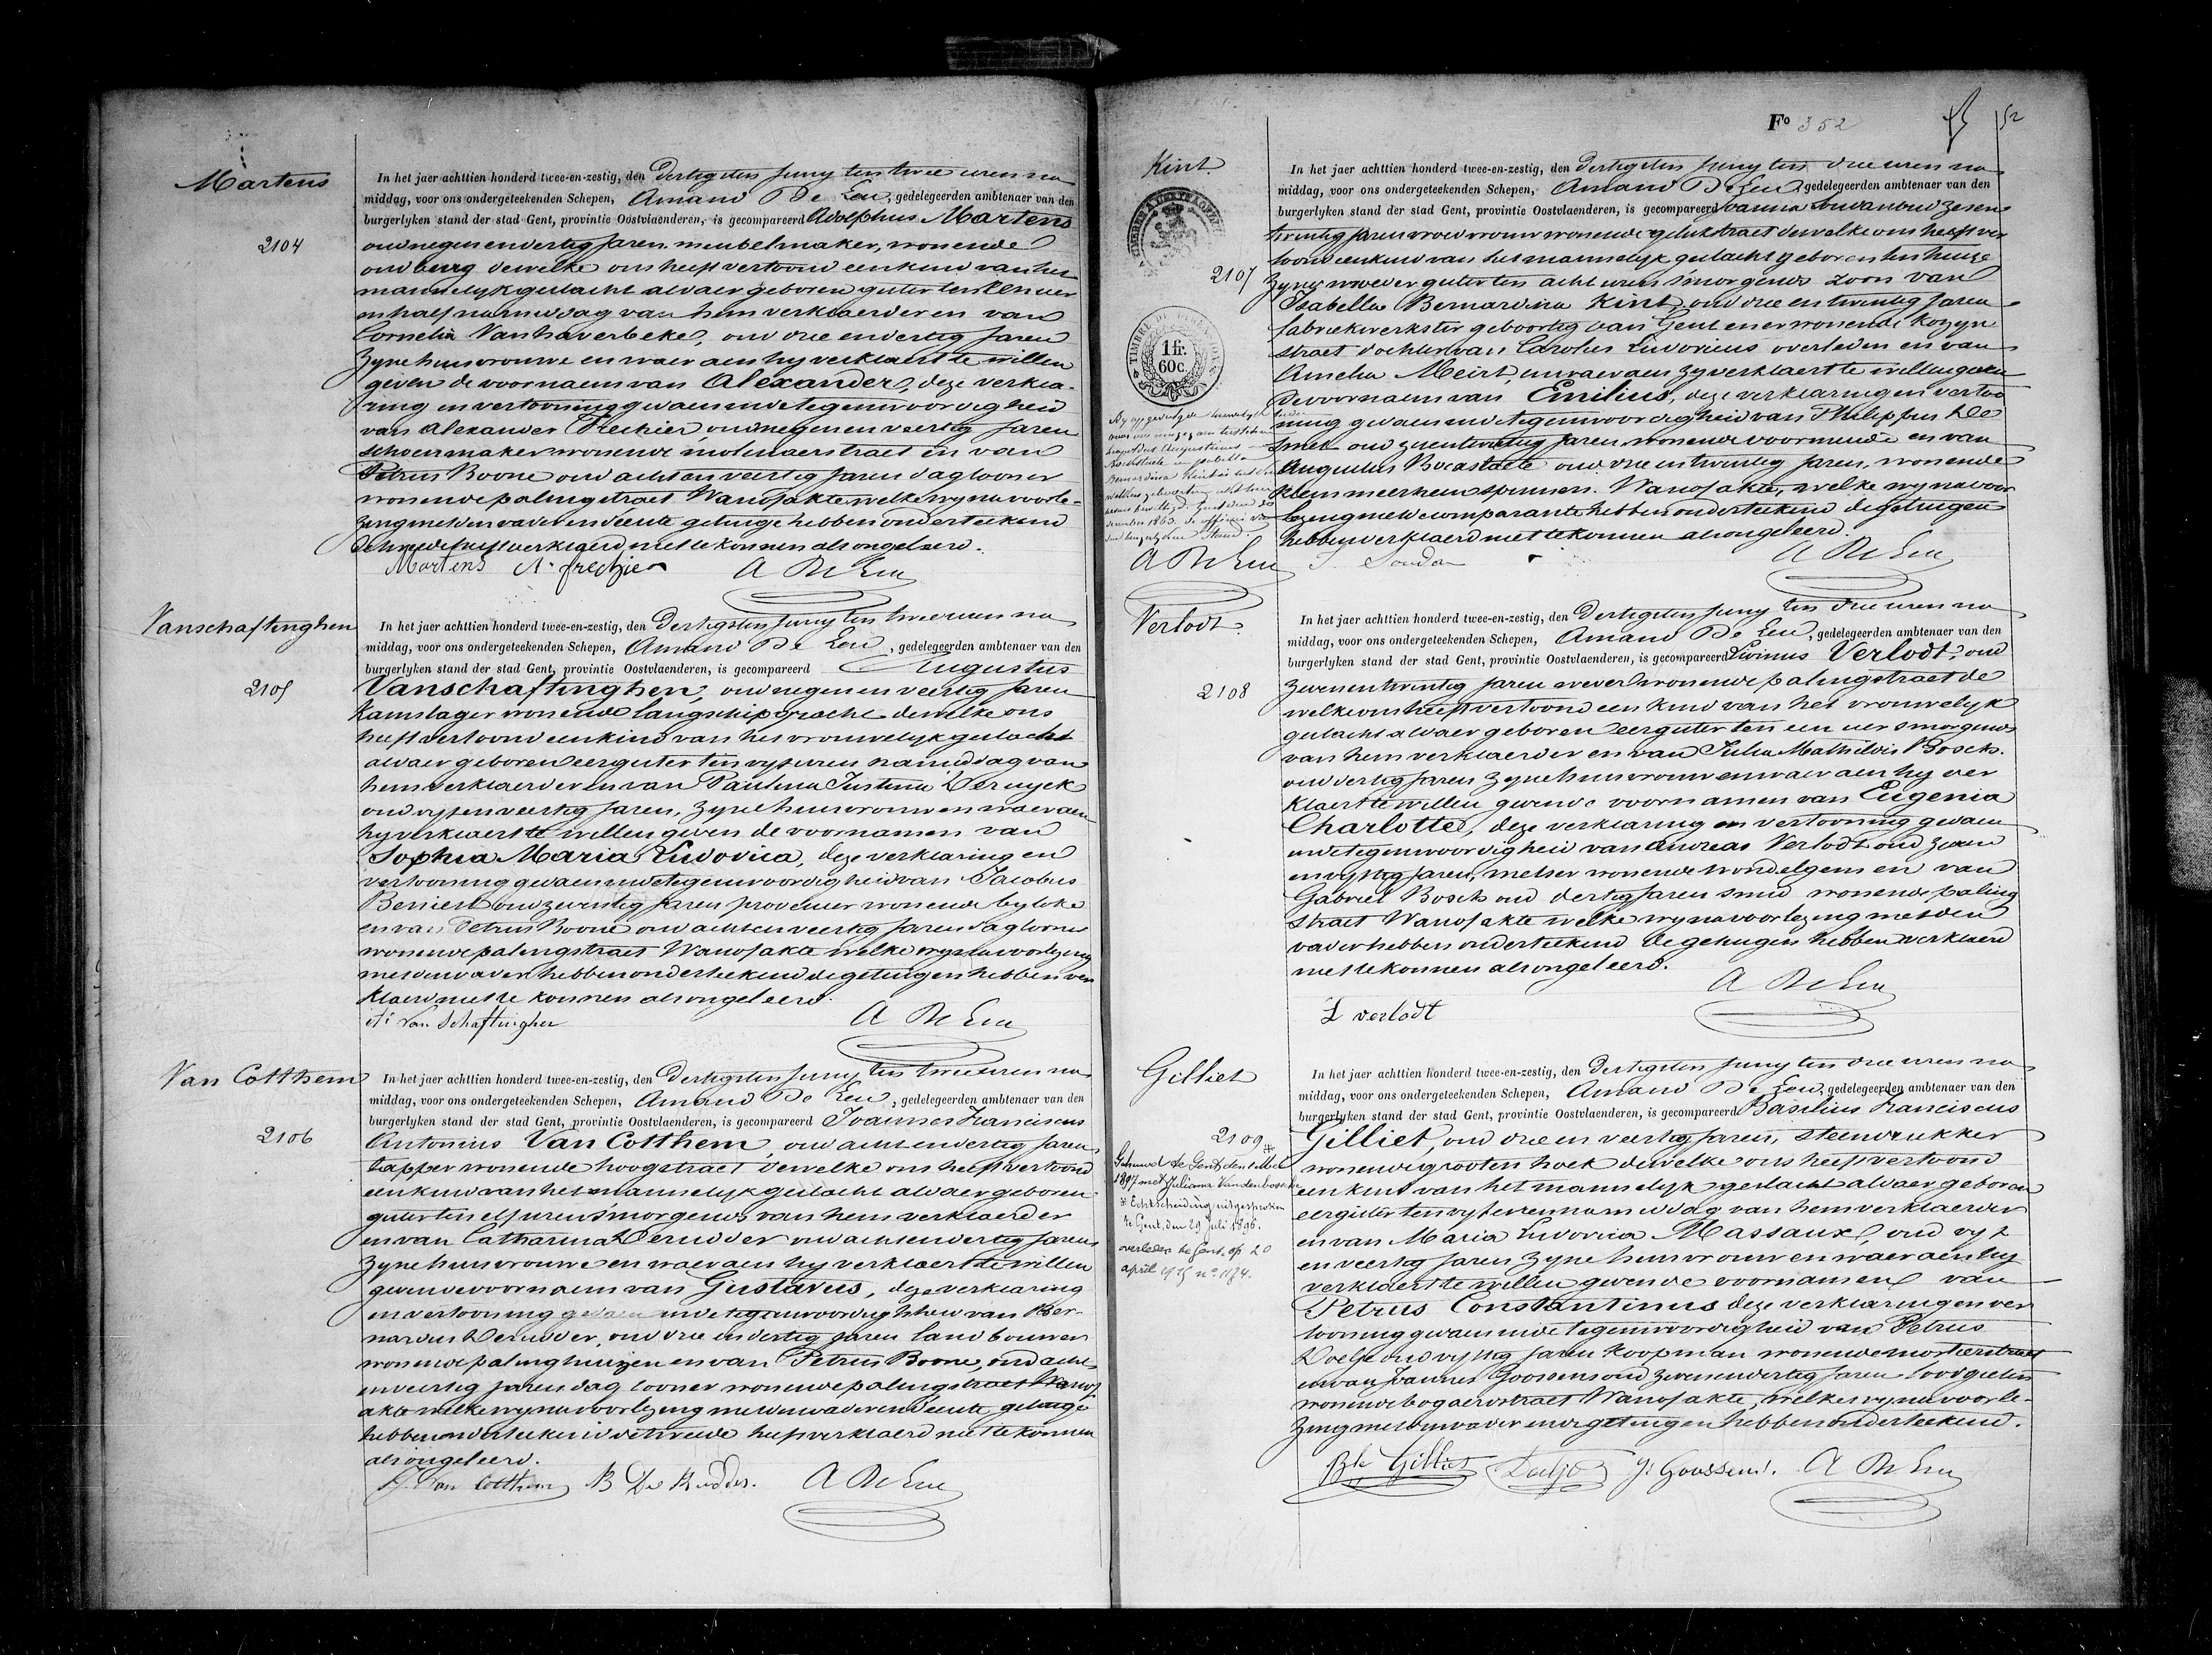 Martens
2104
In het jaer achttien honderd twee-en-zestig, den dertigsten Juny ten twee uren na
middag, voor ons ondergeteekenden Schepen, Amand De Eeu, gedelegeerden ambtenaer van den
burgerlyken stand der stad Gent, provintie Oostvlaenderen, is gecompareerd Adolphus Martens
oud negenendertig jaren meubelmaker, wonende
oudburg dewelke ons heeft vertoond een kind van het
mannelyk geslacht aldaer geboren gister ten uer
en half namiddag van hem verklaerder en van
Cornelia Vanhaverbeke, oud drie endertig jaren
zyne huisvrouwe en waer aen hy verklaert te willen
geven de voornaem van Alexander, deze verkla-
ring en vertooning gedaen in de tegenwoordigheid
van Alexander Frechier, oud negenenveertig jaren
schoenmaker wonende molenaerstraet en van
Petrus Boone oud achtenveertig jaren daglooner
wonende palingstraet Waervan akte welke wy na voorle-
zing met den vader en de eerste getuige hebben onderteekend
de tweede heeft verklaerd niet te konnen als ongeleerd.
Martens A. frechier A De Eeu
Vanschaftinghen
2105
In het jaer achttien honderd twee-en-zestig, den dertigsten Juny ten twee uren na
middag, voor ons ondergeteekenden Schepen, Amand De Eeu, gedelegeerden ambtenaer van den
burgerlyken stand der stad Gent, provintie Oostvlaenderen, is gecompareerd Augustus
Vanschaftinghen, oud negenenveertig jaren
kamslager wonende langschipgracht dewelke ons
heeft vertoond een kind van het vrouwelyk geslacht
aldaer geboren eergister ten vyf uren namiddag van
hem verklaerder en van Paulina Justina Deruyck
oud vyfenveertig jaren, zyne huisvrouw en waer aen
hy verklaert te willen geven de voornamen van
Sophia Maria Ludovica, deze verklaring en
vertooning gedaen in de tegenwoordigheid van Jacobus
Beniert oud zeventig jaren provenier wonende byloke
en van Petrus Boone oud achtenveertig jaren daglooner
wonende palingstraet Waervan akte welke wy na voorlezing
met den vader hebben onderteekend de getuigen hebben ver
klaerd niet te konnen als ongeleerd.
A. Van Schaftinghen A De Eeu
Van Cotthem
2106
In het jaer achttien honderd twee-en-zestig, den dertigsten Juny ten twee uren na
middag, voor ons ondergeteekenden Schepen, Amand De Eeu, gedelegeerden ambtenaer van den
burgerlyken stand der stad Gent, provintie Oostvlaenderen, is gecompareerd Joannes Franciscus
Antonius Van Cotthem, oud achtendertig jaren
tapper wonende hoogstraet dewelke ons heeft vertoond
een kind van het mannelyk geslacht aldaer geboren
gister ten elf uren 's morgends van hem verklaerder
en van Catharina Derudder oud achtendertig jaren
zyne huisvrouwe en waer aen hy verklaert te willen
geven de voornaem van Gustavus, deze verklaring
en vertooning gedaen in de tegenwoordigheid van Ber-
nardus Derudder, oud drie endertig jaren landbouwer
wonende palinghuizen en van Petrus Boone, oud acht
enveertig jaren daglooner wonende palingstraet Waervan
akte welke wy na voorlezing met den vader en d'eerste getuige
hebben onderteekend de tweede heeft verklaerd niet te konnen
als ongeleerd.
J. Van Cotthem B De Rudder. A De Eeu
F° 352
52
Kint.
2107
TIMBRE DE DIMENSION
1 fr.
60 c.
In het jaer achttien honderd twee-en-zestig, den dertigsten Juny ten drie uren na
middag, voor ons ondergeteekenden Schepen, Amand De Eeu, gedelegeerden ambtenaer van den
burgerlyken stand der stad Gent, provintie Oostvlaenderen, is gecompareerd Joanna Soudan oud zesen
twintig jaren vroedvrouw wonende gelukstraet dewelke ons heeft ver
toond een kind van het mannelyk geslacht geboren ten huize
gister ten acht uren 's morgends zoon van
Isabella Bernardina Kint, oud drie en twintig jaren
fabriekwerkster geboortig van Gent en er wonende Kozyn
straet dochter van Carolus Ludovicus overleden en van
Amelia Meirt, en waer aen zy verklaert te willen geven
de voornaem van Emilius, deze verklaring en vertoo
ning gedaen in de tegenwoordigheid van Philippus De
smet oud zesentwintig jaren, wonende voormuide en van
Augustus Bocastaele oud drie en twintig jaren, wonende
kleinmeerhem spinners. Waervan akte, welke wy na voor
lezing met de comparante hebben onderteekend de getuigen
hebben verklaerd niet te konnen als ongeleerd.
A De Eeu J Soudan A De Eeu
Verlodt.
2108
In het jaer achttien honderd twee-en-zestig, den dertigsten Juny ten drie uren na
middag, voor ons ondergeteekenden Schepen, Amand De Eeu, gedelegeerden ambtenaer van den
burgerlyken stand der stad Gent, provintie Oostvlaenderen, is gecompareerd Livinus Verlodt, oud
zevenentwintig jaren wever wonende palingstraet de
welke ons heeft vertoond een kind van het vrouwelyk
geslacht aldaer geboren eergister ten een uer smorgends
van hem verklaerder en van Julia Mathildis Bosch.
oud dertig jaren zyne huisvrouw en waer aen hy ver
klaert te willen geven de voornamen van Eugenia
Charlotte, deze verklaring en vertooning gedaen
in de tegenwoordigheid van Andreas Verlodt oud zeven
envyftig jaren, metser wonende wondelgem en van
Gabriel Bosch oud dertig jaren smid wonende paling
straet Waervan akte welke wy na voorlezing met den
vader hebben onderteekend de getuigen hebben verklaerd
niet te konnen als ongeleerd.
L verlodt A De Eeu
Gilliet
2109
Gehuwd te Gent den
1897 met Juliana Vandenbossche
Echtscheiding uitgesproken
te Gent, den 29 Juli 1896.
overleden te Gent, op 20
april
In het jaer achttien honderd twee-en-zestig, den dertigsten Juny ten drie uren na
middag, voor ons ondergeteekenden Schepen, Amand De Eeu, gedelegeerden ambtenaer van den
burgerlyken stand der stad Gent, provintie Oostvlaenderen, is gecompareerd Basilius Franciscus
Gilliet, oud drie en veertig jaren, steendrukker
wonende grooten hoek dewelke ons heeft vertoond
een kind van het mannelyk geslacht aldaer geboren
eergister ten vyf uren namiddag van hem verklaerder
en van Maria Ludovica Massaux, oud vyf
en veertig jaren zyne huisvrouw en waer aen hy
verklaert te willen geven de voornamen van
Petrus Constantinus deze verklaring en ver
tooning gedaen in de tegenwoordigheid van Petrus
oud vyftig jaren koopman wonende
en van Joannes Goossens oud zevenendertig jaren loodgieter
wonende bogaerdstraet Waervan akte, welke wy na voorle-
zing met den vader en de getuigen hebben onderteekend.
Gilliet J. Goossens. A De Eeu